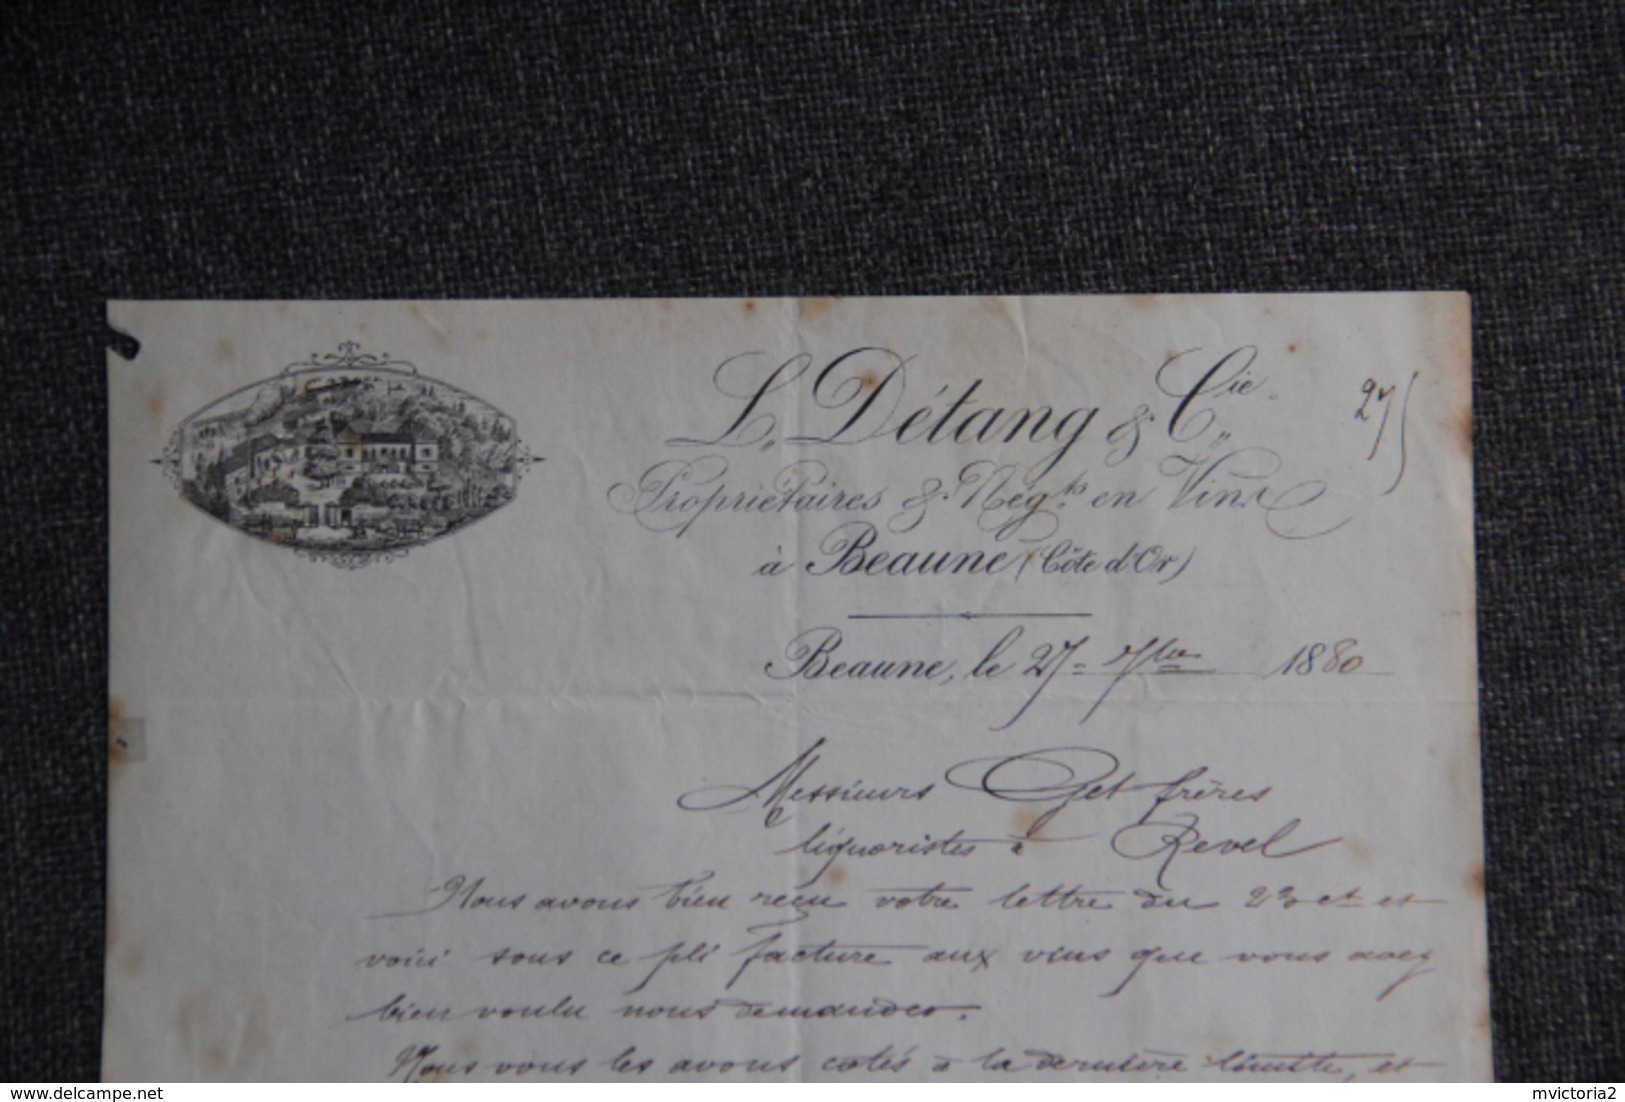 L. Détang & Cie.
275
Propriétaires & Négts en Vins
à Beaune (Côte d'Or)
Beaune, le 27 7bre 1880
Messieurs Get frères
liquoristes à Revel
Nous avons bien reçu votre lettre du 23 ct et
voici sous ce pli facture aux vins que vous avez
bien voulu nous demander.
Nous vous les avons cotés à la dernière limitte, et
delcampe.net
mvictoria2